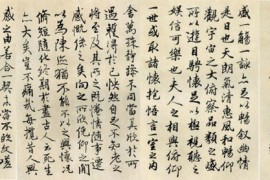 盛一觴一詠亦足以暢叙幽情
是日也天朗氣清惠風和暢仰
觀宇宙之大俯察品類之盛
所以遊目騁懷足以極視聽之
娛信可樂也夫人之相與俯仰
一世或取諸懷抱悟言一室之內
舍萬殊靜躁不同當其欣於所
遇蹔得於己快然自足不知老之
將至及其所之既惓情隨事遷
感慨係之矣向之所欣俛仰之間
以為陳迹猶不能不以之興懷況
脩短隨化終期於盡古人云死生
亦大矣豈不痛哉每攬昔人興
感之由若合一契未嘗不臨文嗟